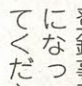 になっ
てくだ